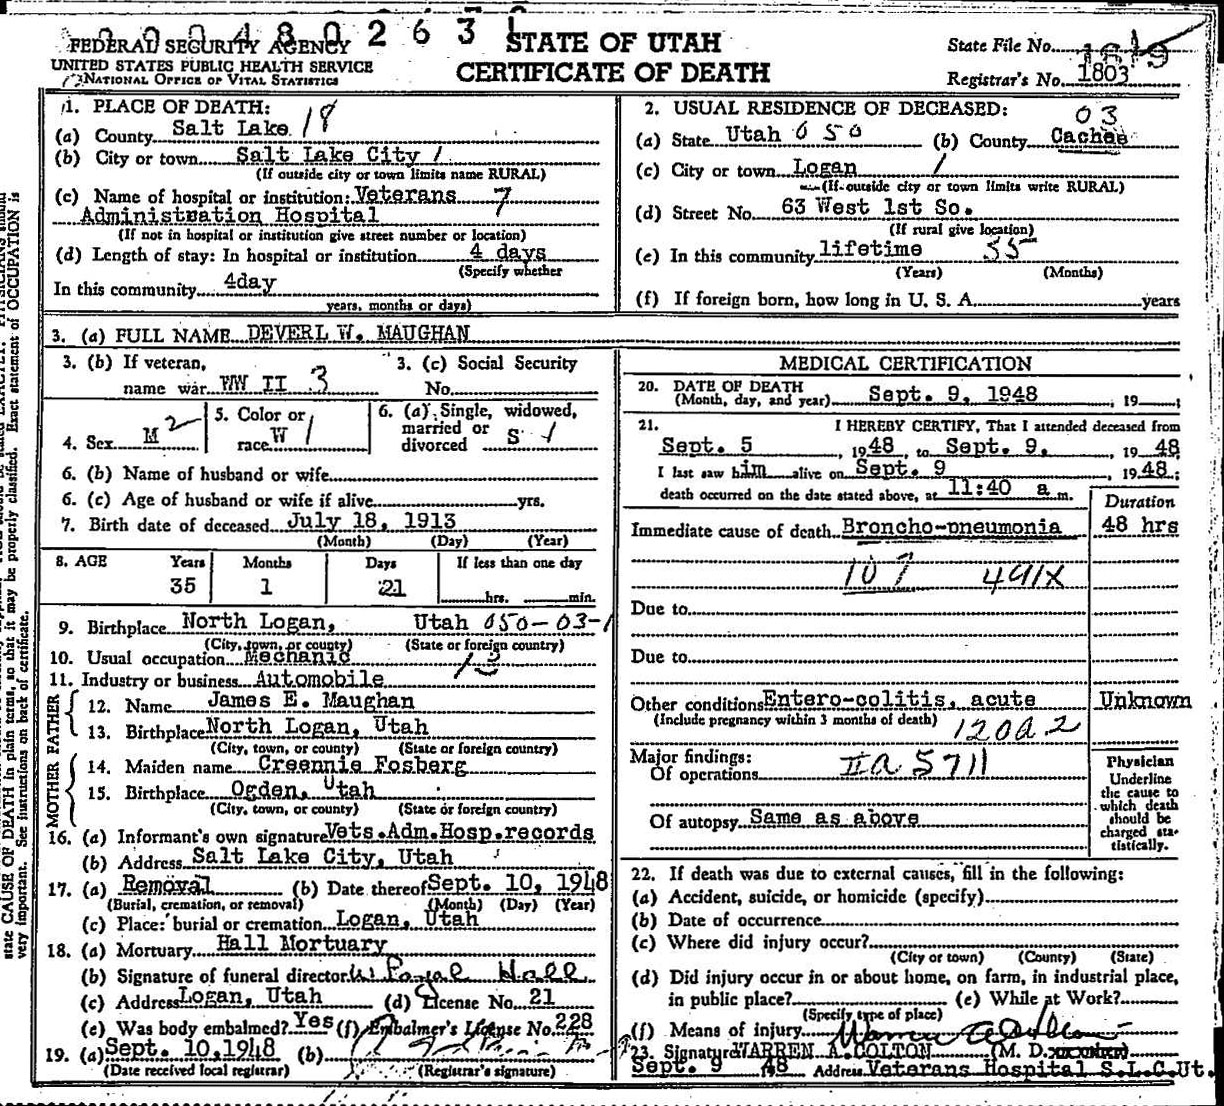 0 0 0 4 8 0 2 6 3 1
FEDERAL SECURITY AGENCY
UNITED STATES PUBLIC HEALTH SERVICE
NATIONAL OFFICE OF VITAL STATISTICS
STATE OF UTAH
CERTIFICATE OF DEATH
State File No.
Registrar's No. 1803
1. PLACE OF DEATH:
(a) County Salt Lake 18
(b) City or town Salt Lake City 1
(If outside city or town limits name RURAL)
(c) Name of hospital or institution: Veterans 7
Administration Hospital
(If not in hospital or institution give street number or location)
(d) Length of stay: In hospital or institution 4 days
(Specify whether
In this community 4day
years, months or days)
2. USUAL RESIDENCE OF DECEASED:
03
(a) State Utah 050 (b) County Cache
(c) City or town Logan 1
(If outside city or town limits write RURAL)
(d) Street No. 63 West 1st So.
(If rural give location)
(e) In this community lifetime 35
(Years) (Months)
(f) If foreign born, how long in U. S. A. years
3. (a) FULL NAME DEVERL W. MAUGHAN
3. (b) If veteran, 3. (c) Social Security
name war WW II 3 No.
4. Sex M 2
5. Color or
race W 1
6. (a) Single, widowed,
married or
divorced S 1
6. (b) Name of husband or wife
6. (c) Age of husband or wife if alive yrs.
7. Birth date of deceased July 18, 1913
(Month) (Day) (Year)
8. AGE Years Months Days If less than one day
35 1 21 hrs. min.
9. Birthplace North Logan, Utah 050-03-1
(City, town, or county) (State or foreign country)
10. Usual occupation Mechanic
11. Industry or business Automobile
FATHER
12. Name James E. Maughan
13. Birthplace North Logan, Utah
(City, town, or county) (State or foreign country)
MOTHER
14. Maiden name Creennie Fosberg
15. Birthplace Ogden, Utah
(City, town, or county) (State or foreign country)
16. (a) Informant's own signature Vets.Adm.Hosp.records
(b) Address Salt Lake City, Utah
17. (a) Removal (b) Date thereof Sept. 10, 1948
(Burial, cremation, or removal) (Month) (Day) (Year)
(c) Place: burial or cremation Logan, Utah
18. (a) Mortuary Hall Mortuary
(b) Signature of funeral director Hall
(c) Address Logan, Utah (d) License No. 21
(e) Was body embalmed? Yes (f) Embalmer's License No. 228
19. (a) Sept. 10,1948 (b)
(Date received local registrar) (Registrar's signature)
MEDICAL CERTIFICATION
20. DATE OF DEATH
(Month, day, and year) Sept. 9, 1948 , 19 ;
21. I HEREBY CERTIFY, That I attended deceased from
Sept. 5 , 1948, to Sept. 9. , 19 48
I last saw him alive on Sept. 9 , 1948;
death occurred on the date stated above, at 11:40 a m.
Duration
Immediate cause of death Broncho-pneumonia 48 hrs
107 491X
Due to
Due to
Other conditions Entero-colitis, acute Unknown
(Include pregnancy within 3 months of death) 120a2
Major findings:
Of operations IIa 5711
Of autopsy Same as above
Physician
Underline
the cause to
which death
should be
charged sta-
tistically.
22. If death was due to external causes, fill in the following:
(a) Accident, suicide, or homicide (specify)
(b) Date of occurrence
(c) Where did injury occur?
(City or town) (County) (State)
(d) Did injury occur in or about home, on farm, in industrial place,
in public place? (e) While at Work?
(Specify type of place)
(f) Means of injury
23. Signature WARREN A. COLTON (M. D.
Sept. 9 48 Address Veterans Hospital S.L.C.Ut.
state CAUSE OF DEATH in plain terms, so that it may be properly classified. Exact statement of OCCUPATION is
very important. See instructions on back of certificate.